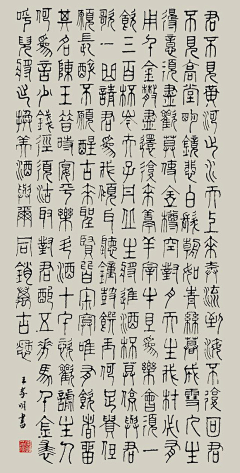 君不見黃河之水天上來奔流到海不復回君
不見高堂明鏡悲白髮朝如青絲暮成雪人生
得意須盡歡莫使金樽空對月天生我材必有
用千金散盡還復來烹羊宰牛且為樂會須一
飲三百杯岑夫子丹丘生將進酒杯莫停與君
歌一曲請君為我傾耳聽鐘鼓饌玉何足貴但
願長醉不願醒古來聖賢皆寂寞唯有飲者留
其名陳王昔時宴平樂斗酒十千恣歡謔主人
何為言少錢徑須沽取對君酌五花馬千金裘
呼兒將出換美酒與爾同銷萬古愁